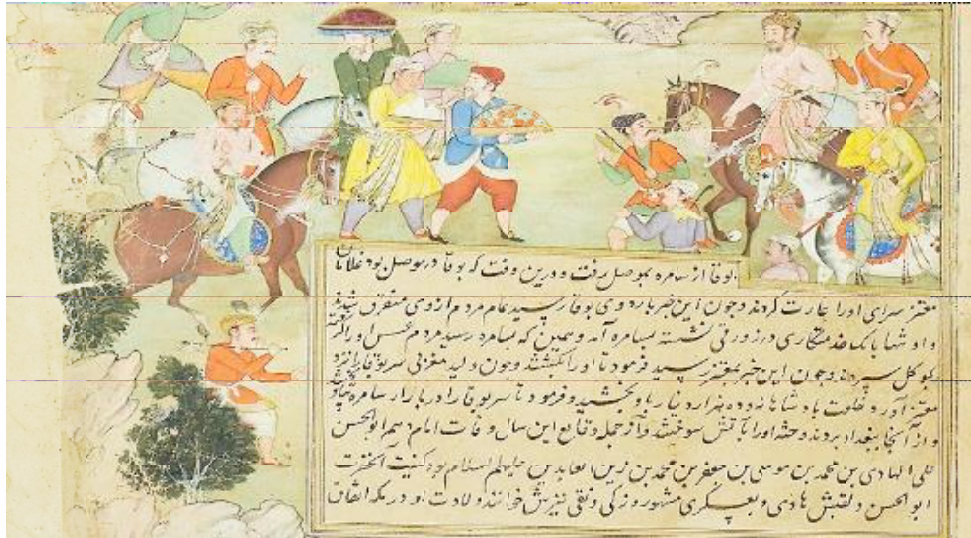 بوقا از سامره بموصل رفت و درین وقت که بوقا در موصل بود غلامان
معتز سرای او را غارت کردند و چون این خبر باردوی بوقا رسید تمام مردم از وی متفرق شدند
و او تنها با یک خدمتکاری در زورقی نشسته بسامره آمد و همین که بسامره رسید مردم عسس او را گرفته
بموکل سپردند و چون این خبر بمعتز رسید فرمود تا او را بکشتند و چون ولید مغربی سر بوقا را نزد
معتز آورد خلعت پادشاهانه و ده هزار دینار باو بخشید و فرمود تا سر بوقا را در بازار سامره
و از آنجا ببغداد بردند و جثه او را بآتش سوختند و از جمله وقایع این سال وفات امام دهم ابوالحسن
علی الهادی بن محمد بن موسی بن جعفر بن محمد بن زین العابدین علیهم السلام بود کنیت آنحضرت
ابوالحسن و لقبش هادی و بعسکری مشهور و زکی و نقی نیزش خوانند ولادت او در مکه اتفاق